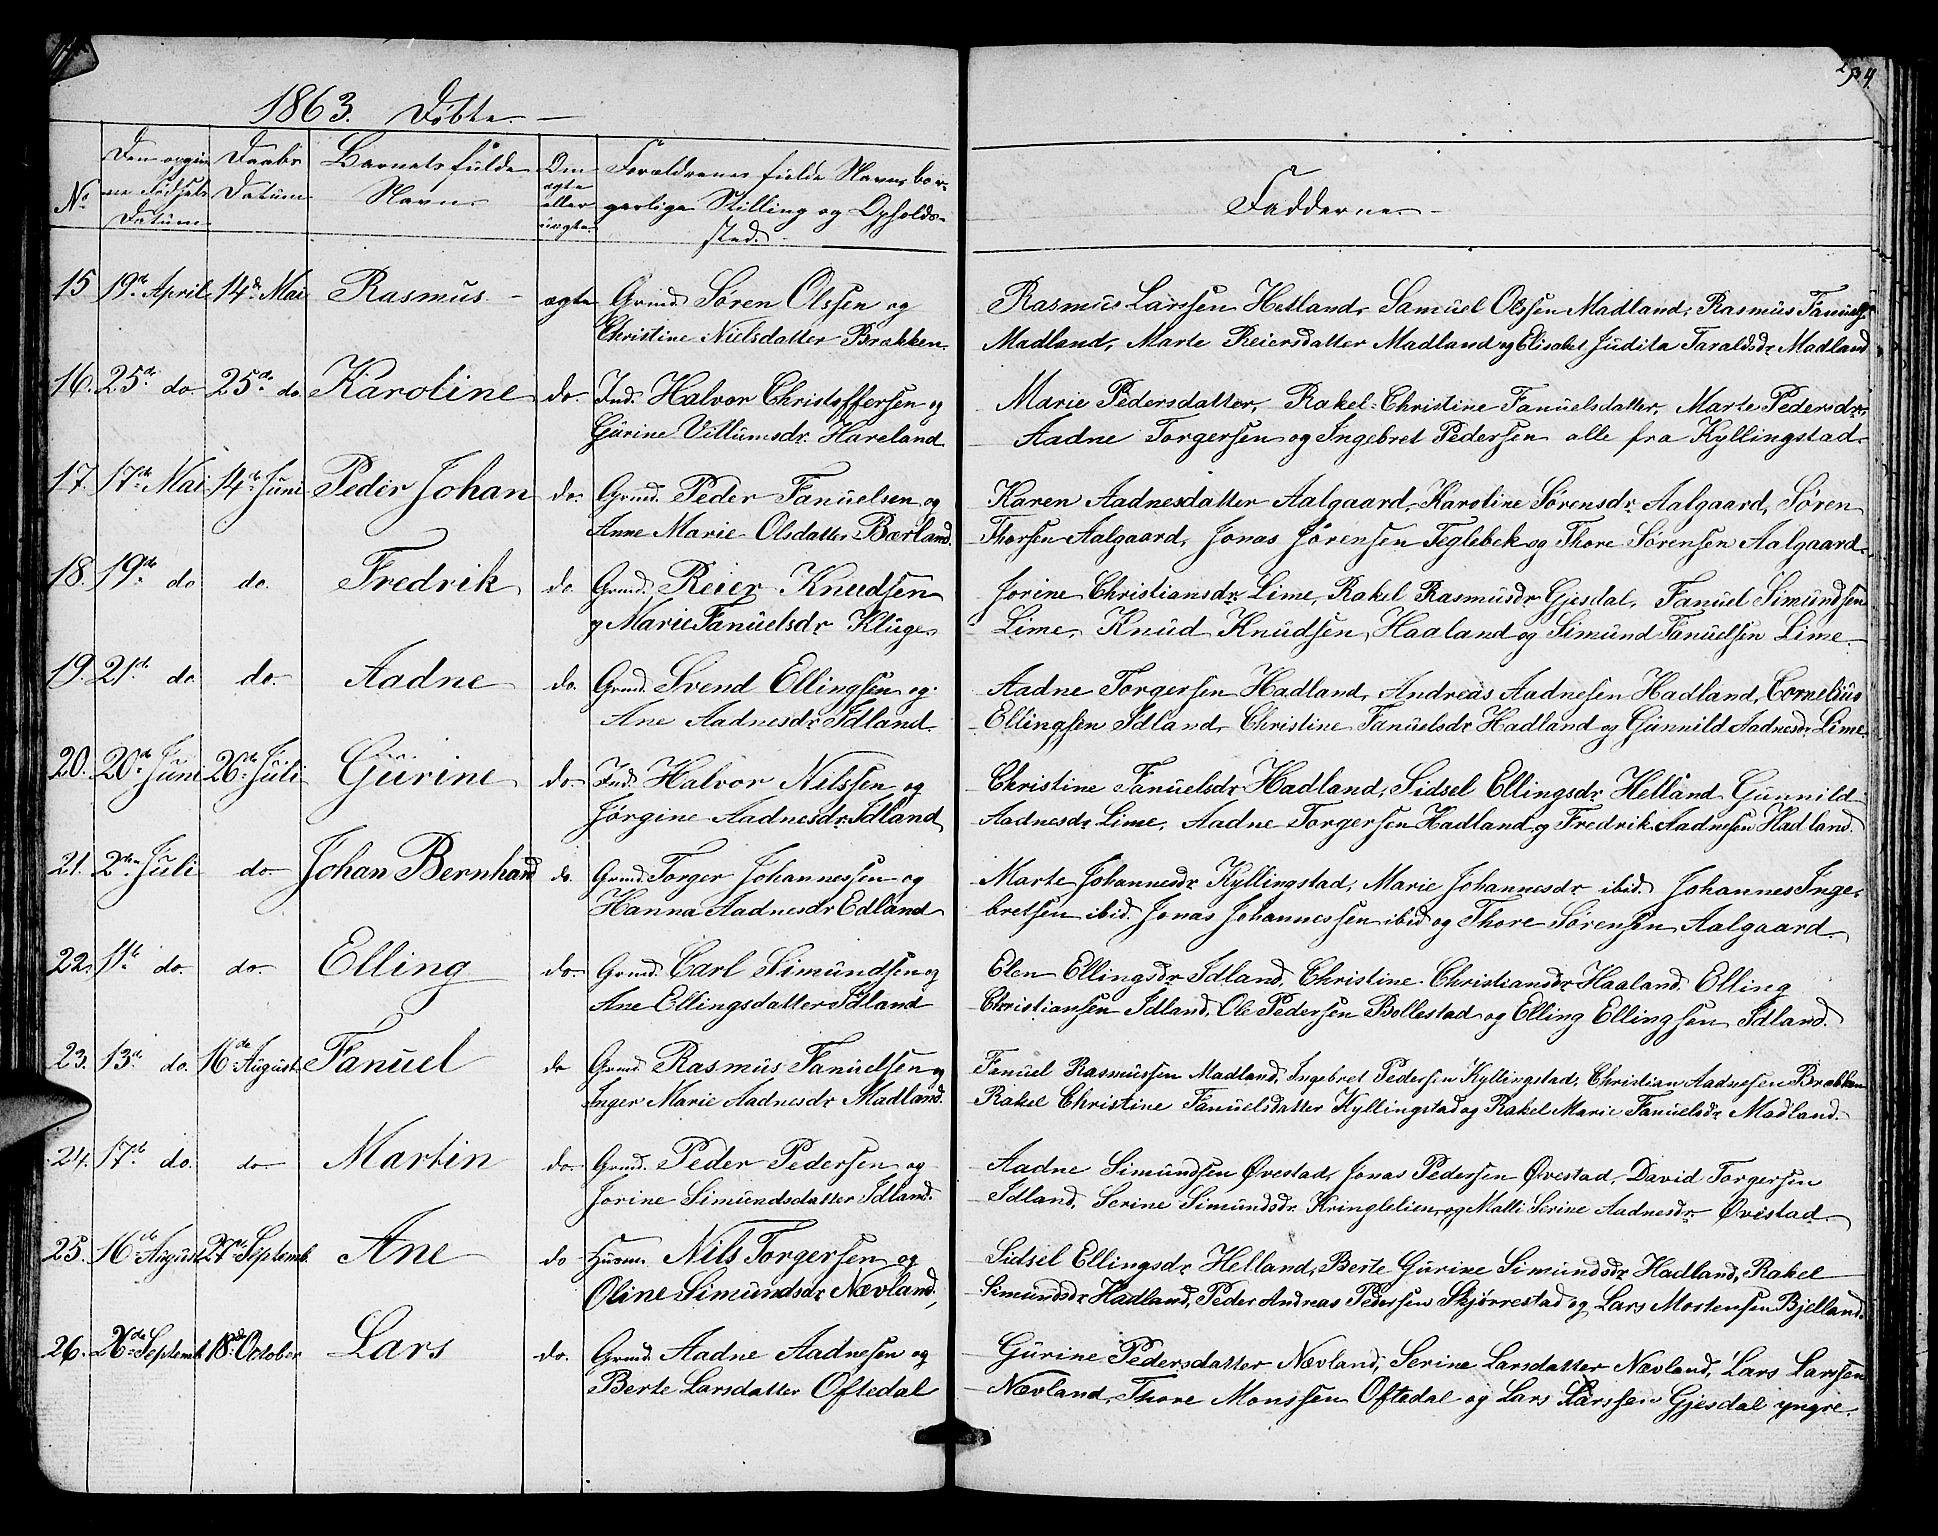 1863. Døbte.
234.
No
Den opgivne Fødsels Datum
Daabs Datum
Barnets fulde Navn.
Om ægte eller uægte.
Forældrenes fulde Navn, borgerlige Stilling og Opholdssted.
Faddernes
15 19de April 14de Mai Rasmus ægte Grmd. Søren Olssen og
Christine Nielsdatter Brækken.
Rasmus Larssen Hetland, Samuel Olssen Madland, Rasmus Fanuels.
Madland, Marte Reiersdatter Madland og Elisabet Judita Taraldsdr. Madland
16. 25de do. 25de do. Karoline do. Ind. Halvor Christoffersen og
Gurine Villumsdr. Hareland
Marie Pedersdatter, Rakel Christine Fanuelsdatter, Marte Pedersdr.
Aadne Torgersen og Ingebret Pedersen alle fra Kyllingstad.
17. 17de Mai 14de Juni Peder Johan do. Grmd. Peder Fanuelsen og
Anne Marie Olsdatter Bærland.
Karen Aadnesdatter Aalgaard, Karoline Sørensdr. Aalgaard, Søren
Thorsen Aalgaard, Jonas Jørensen Teglebek og Thore Sørensen Aalgaard.
18. 19de do do. Fredrik do. Grmd. Reier Knudsen
og Marie Fanuelsdr. Kluge.
Jorine Christiansdr. Lime, Rakel Rasmusdr. Gjesdal, Fanuel Simundsen
Lime, Knud Knudsen Haaland og Simund Fanuelsen Lime.
19. 21de do do. Aadne do. Grmd. Svend Ellingsen og
Ane Aadnesdr. Idland.
Aadne Torgersen Hadland, Andreas Aadnesen Hadland, Cornelius
Ellingsen Idland, Christine Fanuelsdr. Hadland og Gunnild Aadnesdr. Lime.
20. 20de Juni 26de Juli Gurine do. Ind. Halvor Nilssen og
Jørgine Aadnesdr. Idland
Christine Fanuelsdr. Hadland, Sidsel Ellingsdr. Helland Gunnild
Aadnesdr. Lime, Aadne Torgersen Hadland og Fredrik Aadnesen Hadland.
21. 2den Juli do. Johan Bernhard do. Grmd. Torger Johannessen og
Hanna Aadnesdr. Edland
Marte Johannesdr. Kyllingstad, Marie Johannesdr. ibid. Johannes Inge-
bretsen ibid. Jonas Johannessen ibid og Thore Sørensen Aalgaard.
22. 11te do. do. Elling do. Grmd. Carl Simundsen og
Ane Ellingsdatter Idland
Elen Ellingsdr. Idland, Christine Christiansdr. Haaland. Elling
Christiansen Idland, Ole Pedersen Bollestad og Elling Ellingsen Idland.
23. 13de do. 16de August Fanuel do Grmd. Rasmus Fanuelsen og
Inger Marie Aadnesdr. Madland.
Fanuel Rasmussen Madland, Ingebret Pedersen Kyllingstad, Christian Aadnesen Brækken
Rakel Christine Fanuelsdatter Kyllingstad og Rakel Marie Fanuelsdr. Madland.
24. 17de do. do Martin do. Grmd. Peder Pedersen og
Jorine Simundsdatter Idland.
Aadne Simundsen Øvestad, Jonas Pedersen Øvestad, David Torgersen
Idland, Serine Simundsdr. Kringlelien og Malli Serine Aadnesdr. Øvestad.
25. 16de August 27de Septemb. Ane do Husm. Nils Torgersen og
Oline Simundsdr. Nævland.
Sidsel Ellingsdr. Helland, Berte Gurine Simundsdr. Hadland, Rakel
Simundsdr. Hadland, Peder Andreas Pedersen Skjørrestad og Lars Mortensen Bjelland.
26. 26de Septemb. 18de October Lars do. Grmd. Aadne Aadnesen og
Berte Larsdatter Oftedal
Gurine Pedersdatter Nævland, Serine Larsdatter Nævland, Lars Larssen
Nævland, Thore Monssen Oftedal og Lars Larssen Gjesdal yngre.